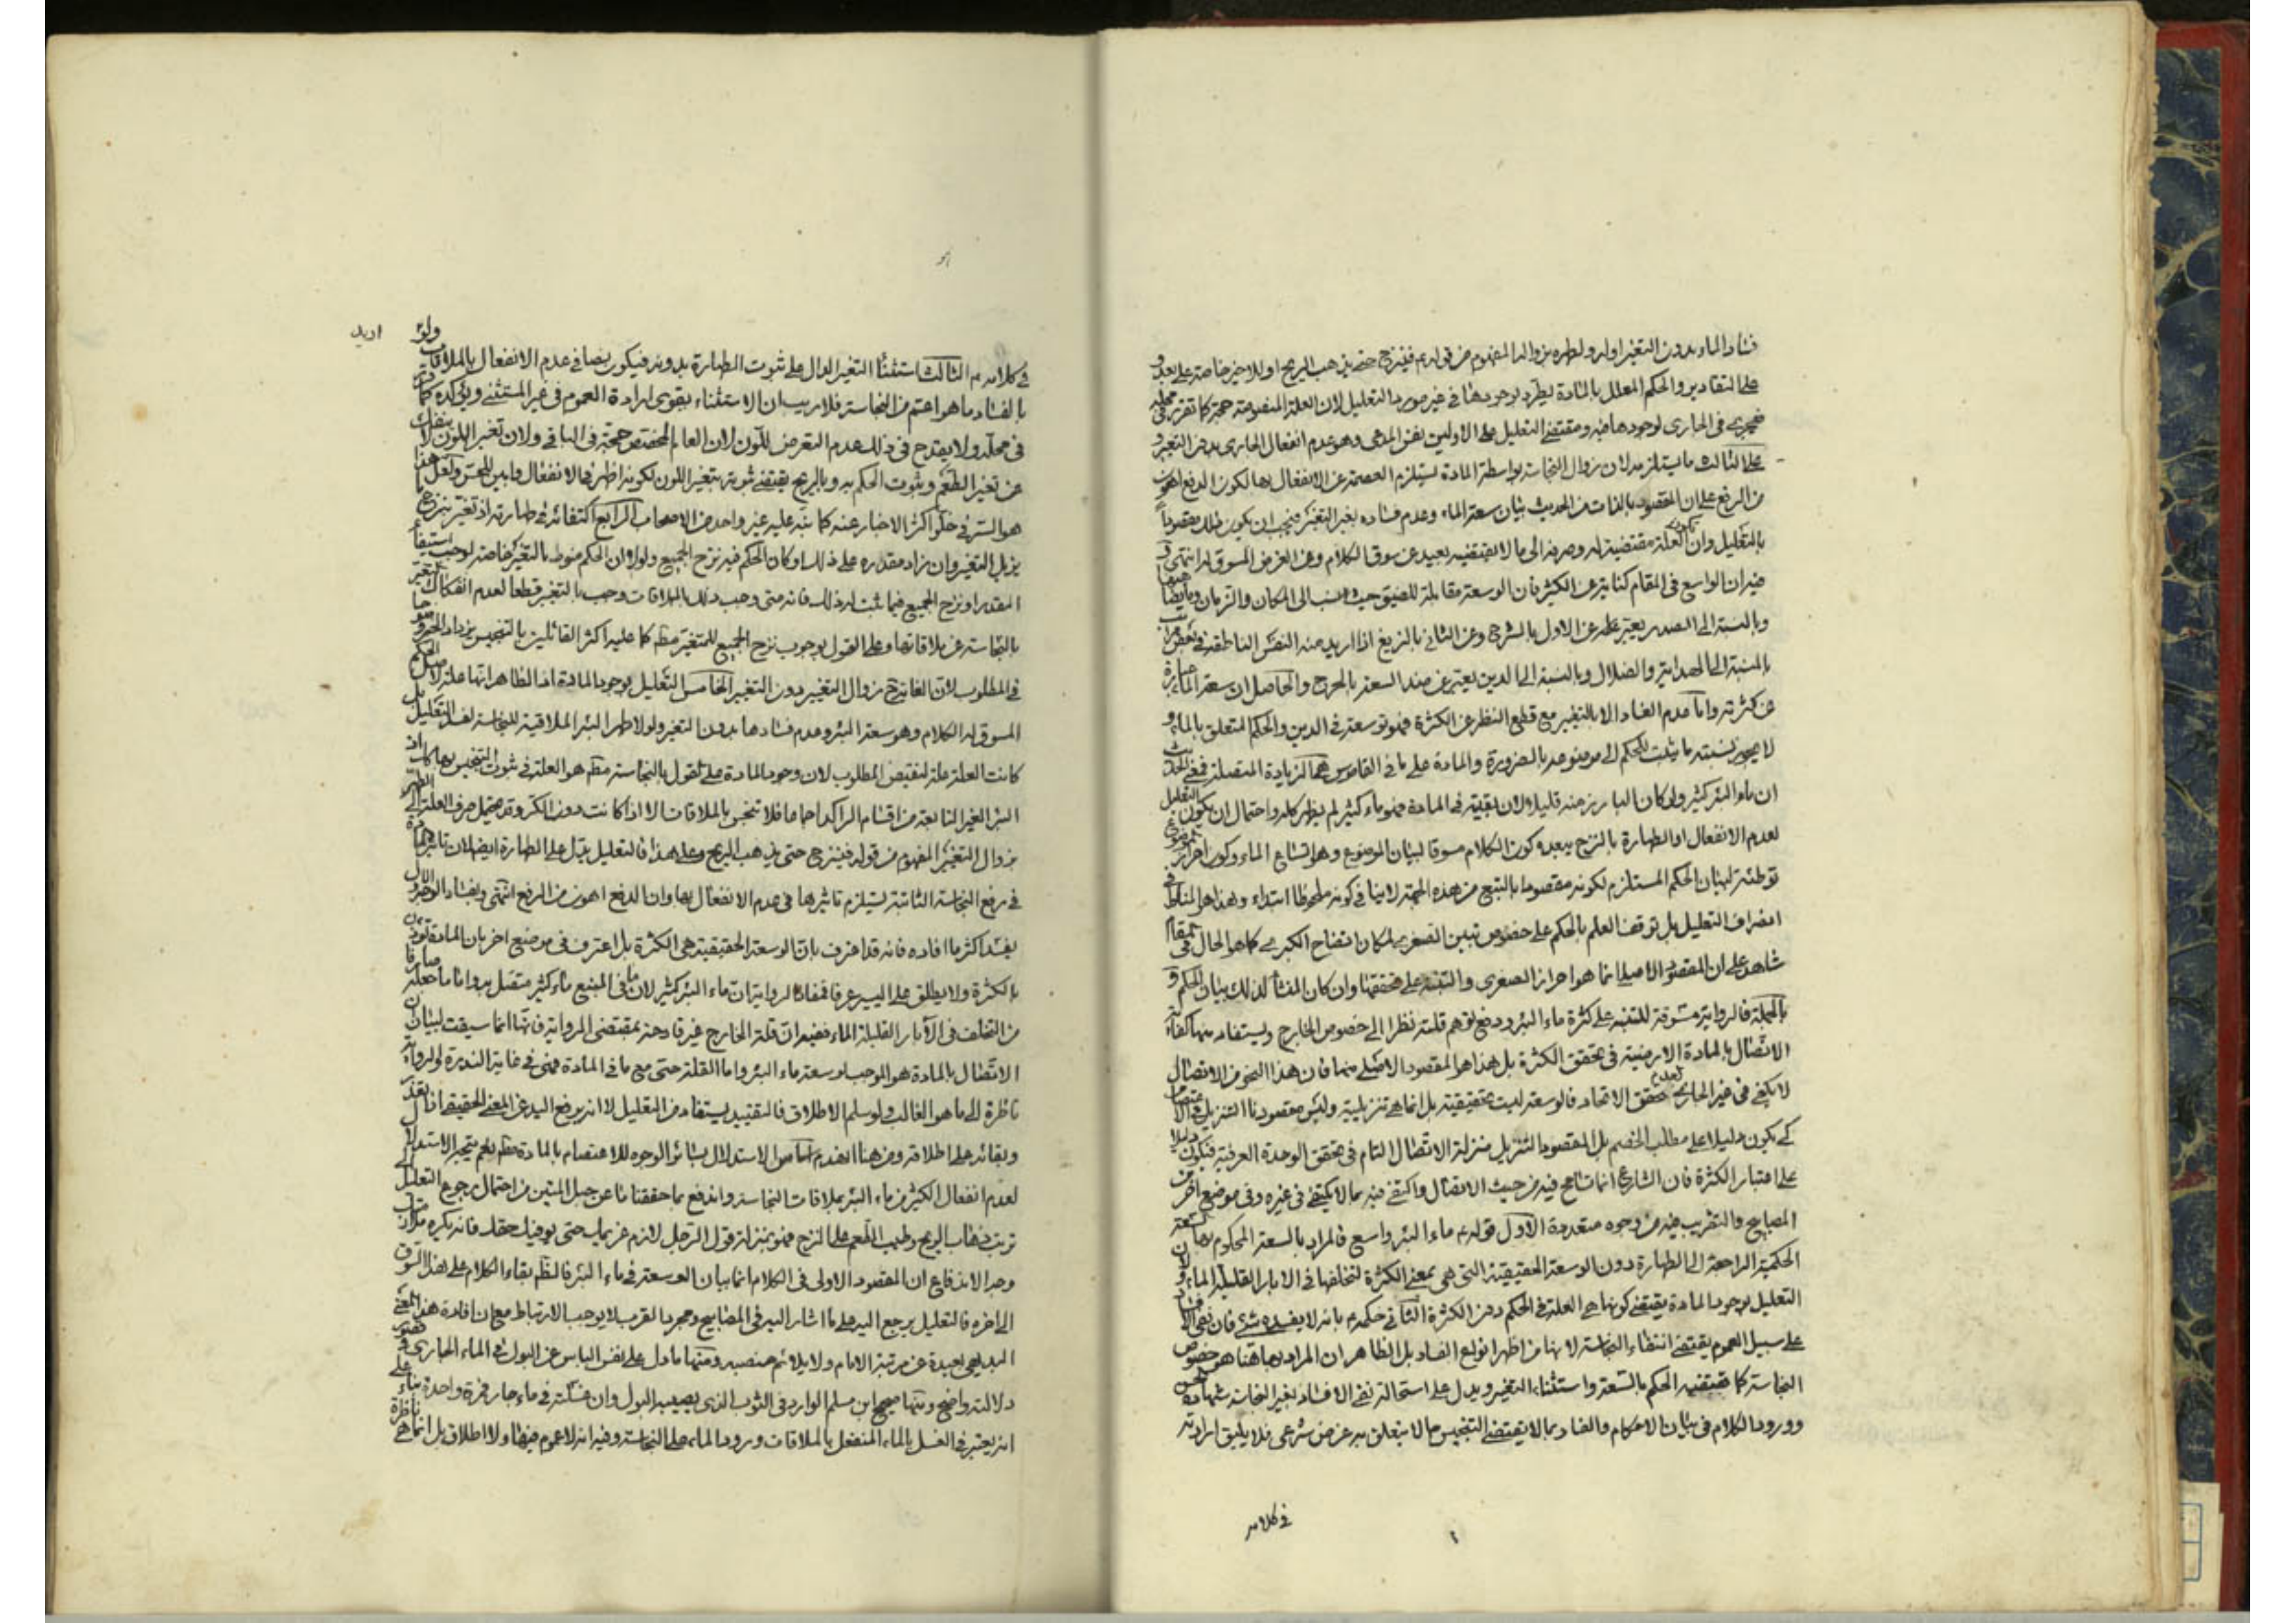 فساد الماء بدون التغير اولا ولطهره بزواله المفهوم من قوله ع فينزح حتى يذهب الريح او للاخير خاصة على بعد و
على التقادير والحكم المعلل بالمادة يطرد بوجودها في غير مورد التعليل لان العلة المنصوصة حجة كما تقرر في محله
فيجرى في الجارى لوجودها فيه ومقتضى التعليل على الاولين نفس المدعى وهو عدم انفعال الجارى بدون التغير و
على الثالث ما يستلزمه لان زوال النجاسة بواسطة المادة يستلزم العصمة عن الانفعال بها لكون الدفع اهون
من الرفع على ان المقصود بالذات من الحديث بيان سعة الماء وعدم فساده بغير التغير فيجب ان يكون ذلك مقصوداً
بالتعليل وان تكون العلة مقتضية له وصرفه الى ما لا تقتضيه بعيد عن سوق الكلام وعن الغرض المسوق له انتهى و
فيه ان الواسع في المقام كناية عن الكثير فان الوسعة مقابلة للضيق حيث تنسب الى المكان والزمان
وبالنسبة الى الصدر يعتبر عن الاول بالشرح وعن الثاني بالزيغ اذا اريد منه النفس الناطقة في بعض
بالنسبة الى الهداية والضلال وبالنسبة الى الدين يعتبر عن ضد السعة بالحرج والحاصل ان سعة الماء عبارة
عن كثرته واما عدم الفساد الا بالتغير مع قطع النظر عن الكثرة فهو توسعة في الدين والحكم المتعلق بالماء و
لا يجوز نسبة ما يثبت للحكم الى موضوعه بالضرورة والمادة على ما في القاموس هى الزيادة المتصلة فمعنى الحديث
ان ماء البئر كثير ولو كان البارز منه قليلا لان بقيته في المادة فهو ماء كثير لم يظهر كله واحتمال ان يكون التعليل
لعدم الانفعال او الطهارة بالنزح يبعده كون الكلام مسوقا لبيان الموضوع وهو اتساع الماء وكون احراز الموضوع
توطئة لبيان الحكم المستلزم لكونه مقصودا بالتبع من هذه الجهة لا ينافي كونه ملحوظا ابتداء وهذا هو المناط في
انصراف التعليل بل توقف العلم بالحكم على خصوص تبين الصغرى لمكان اتضاح الكبرى كما هو الحال في المقام
شاهد على ان المقصود الاصلى انما هو احراز الصغرى والتنبيه على تحققها وان كان المنشأ لذلك بيان الحكم و
بالجملة فالرواية مسوقة للتنبيه على كثرة ماء البئر ودفع توهم قلته نظرا الى خصوص الخارج ويستفاد منها كفاية
الاتصال بالمادة الارضية في تحقق الكثرة بل هذا هو المقصود الاصلى منها فان هذا النحو من الاتصال
لا يكفى في غير الجارى تحقق الاتحاد فالوسعة ليست تحقيقية بل انما هى تنزيلية وليس مقصودنا التنزيل
كى يكون دليلا على مطلب الخصم بل المقصود التنزيل منزلة الاتصال التام في تحقق الوحدة العرفية فيكون دليلا
على اعتبار الكثرة فان الشارع انما تسامح فيه من حيث الاتصال واكتفى فيه بما لا يكتفى في غيره وفى موضع اخر من
المصابيح والتقريب فيه من وجوه متعددة الاول قوله ع ماء البئر واسع فالمراد بالسعة المحكوم بها السعة
الحكمية الراجعة الى الطهارة دون الوسعة الحقيقية التى هى بمعنى الكثرة لتخلفها في الابار القليلة الماء ولان
التعليل بوجود المادة يقتضى كونها هى العلة في الحكم دون الكثرة الثاني حكمه ع بانه لا يفسده شئ فان نفى الافساد
على سبيل العموم يقتضى انتفاء النجاسة لانها من اظهر انواع الفساد بل الظاهر ان المراد به هاهنا هو خصوص
النجاسة كما يقتضيه الحكم بالسعة واستثناء التغير ويدل على استحالة نفى الافساد بغير النجاسة شهادة الحس
وورود الكلام في بيان الاحكام والفساد بما لا يقتضى التنجيس مما لا يتعلق به غرض شرعى فلا يليق ارادته
في كلامه
في كلامه ع الثالث استثناء التغير الدال على ثبوت الطهارة بدونه فيكون نصا في عدم الانفعال بالملاقات ولو
اريد
بالفساد ما هو اعم من النجاسة فلا ريب ان الاستثناء يقوى ارادة العموم في غير المستثنى ويؤكده كما قرر
في محله ولا يقدح في ذلك عدم التعرض للون لان العام المخصص حجة في الباقي ولان تغير اللون لا ينفك
عن تغير الطعم وثبوت الحكم به وبالريح يقتضى ثبوته بتغير اللون لكونه اظهر في الانفعال وابين للحس ولعل هذا
هو السر في خلو اكثر الاخبار عنه كما نبه عليه غير واحد من الاصحاب الرابع اكتفائه في طهارته اذ تغير بنزح ما
يزيل التغير وان زاد مقدره على ذلك او كان الحكم فيه نزح الجميع ولولا ان الحكم منوط بالتغير خاصة لوجب استيفاء
المقدر او نزح الجميع فيما ثبت له ذلك فانه متى وجب ذلك بالملاقات وجب بالتغير قطعا لعدم انفكاك التغير
بالنجاسة عن ملاقاتها وعلى القول بوجوب نزح الجميع للمتغير مط كما عليه اكثر القائلين بالتنجيس يزداد الحديث وضوحا
في المطلوب لان الغاية في النزح زوال التغير دون التغير الخامس التعليل بوجود المادة اذ الظاهر انها علة لاصل الحكم
المسوق له الكلام وهو سعة البئر وعدم فسادها بدون التغير ولولا طهر البئر الملاقية للنجاسة لفسد التعليل بل
كانت العلة علة لنقيض المطلوب لان وجود المادة على القول بالنجاسة مط هو العلة في ثبوت التنجيس بها اذ
البئر الغير النابعة من اقسام الراكد اجماعا فلا تنجس بالملاقات الا اذا كانت دون الكر وقد يحتمل صرف العلة الى
زوال التغير المفهوم من قوله فينزح حتى يذهب الريح وعلى هذا فالتعليل يدل على الطهارة ايضا لان تاثير المادة
في رفع النجاسة الثابتة يستلزم تاثيرها في عدم الانفعال بها وان الدفع اهون من الرفع انتهى وبفساد الوجه الاول
يفسد اكثر ما افاده فانه قد اعترف بان الوسعة الحقيقية هى الكثرة بل اعترف في موضع اخر بان المادة تؤذن
بالكثرة ولا يطلق على اليسير عرفا فمفاد الرواية ان ماء البئر كثير لان ما في المنبع ماء كثير متصل به واما ما جعله صارفا
من التخلف في الآبار القليلة الماء ففيه ان قلة الخارج غير قادحة بمقتضى الرواية فانها انما سيقت لبيان ان
الاتصال بالمادة هو الموجب لوسعة ماء البئر واما القلة حتى مع ما في المادة فهى في غاية الندرة والرواية
ناظرة الى ما هو الغالب ولو سلم الاطلاق فالتقييد يستفاد من التعليل لا انه يرفع اليد عن المعنى الحقيقى
وبقائه على اطلاقه ومن هنا انهدم اساس الاستدلال بسائر الوجوه للاعتصام بالمادة مط نعم يتجه الاستدلال
لعدم انفعال الكثير من ماء البئر بملاقات النجاسة واندفع بما حققنا ما عن حبل المتين من احتمال رجوع التعليل الى
ترتب ذهاب الريح وطيب الطعم على النزح فهو بمنزلة قول الرجل لازم غريمك حتى يوفيك حقك فانه يكره ملازمتك
وجه الاندفاع ان المقصود الاولى في الكلام انما بيان الوسعة في ماء البئر فالظ بقاء الكلام على هذا السوق
الى اخره فالتعليل يرجع اليه على ما اشار اليه في المصابيح ومجرد القرب لا يوجب الارتباط مع ان افادة هذا المعنى
البديهى بعيدة عن مرتبة الامام ولا يلائم منصبه ومنها ما دل على نفى الباس عن البول في الماء الجارى و
دلالته واضح ومنها صحيح ابن مسلم الوارد في الثوب الذى يصيبه البول وان غسلته في ماء جار فمرة واحدة بناء على
انه يعتبر في الغسل بالماء المنفعل بالملاقات ورود الماء على النجاسة وفيه انه لا عموم فيها ولا اطلاق بل انما هى ناظرة